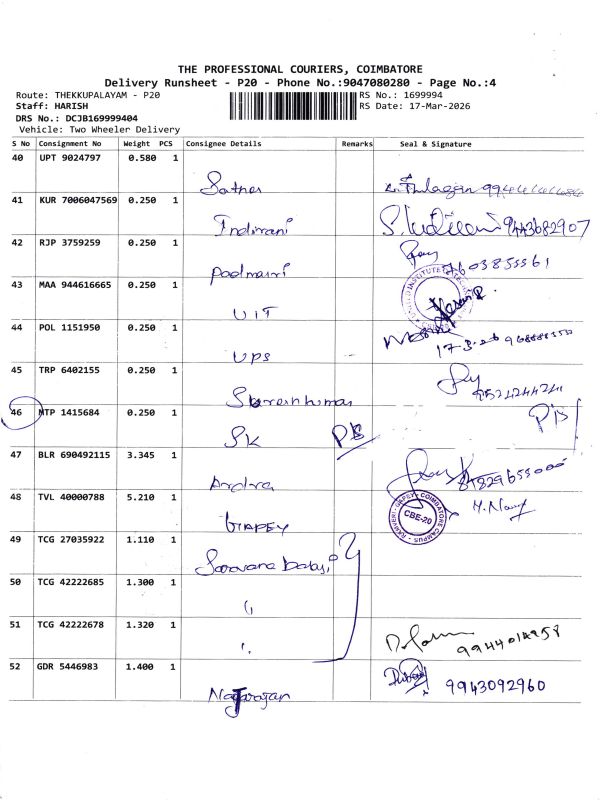 THE PROFESSIONAL COURIERS, COIMBATORE
Delivery Runsheet - P20 - Phone No.:9047080280 - Page No.:4
Route: THEKKUPALAYAM - P20
RS No.: 1699994
Staff: HARISH
RS Date: 17-Mar-2026
DRS No.: DCJB169999404
Vehicle: Two Wheeler Delivery
S No Consignment No Weight PCS Consignee Details Remarks Seal & Signature
40 UPT 9024797 0.580 1
41 KUR 7006047569 0.250 1
Indirani 9443682907
42 RJP 3759259 0.250 1
Padmavri
43 MAA 944616665 0.250 1
UIT
44 POL 1151950 0.250 1
UPS 17-3-26
45 TRP 6402155 0.250 1
46 MTP 1415684 0.250 1
SK
47 BLR 690492115 3.345 1
48 TVL 40000788 5.210 1
CBE-20
49 TCG 27035922 1.110 1
50 TCG 42222685 1.300 1
51 TCG 42222678 1.320 1
52 GDR 5446983 1.400 1
9943092960
Nagarajan